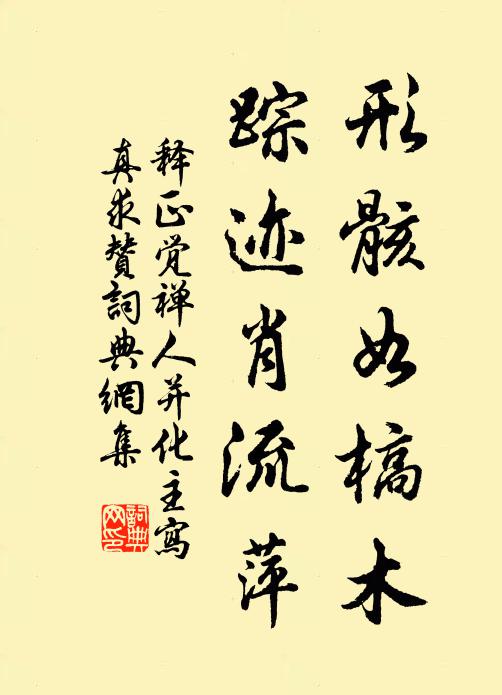 形骸如槁木
踪迹肖流萍
释正觉禅人并化主寫
真求赞詞典網集
詞典网印